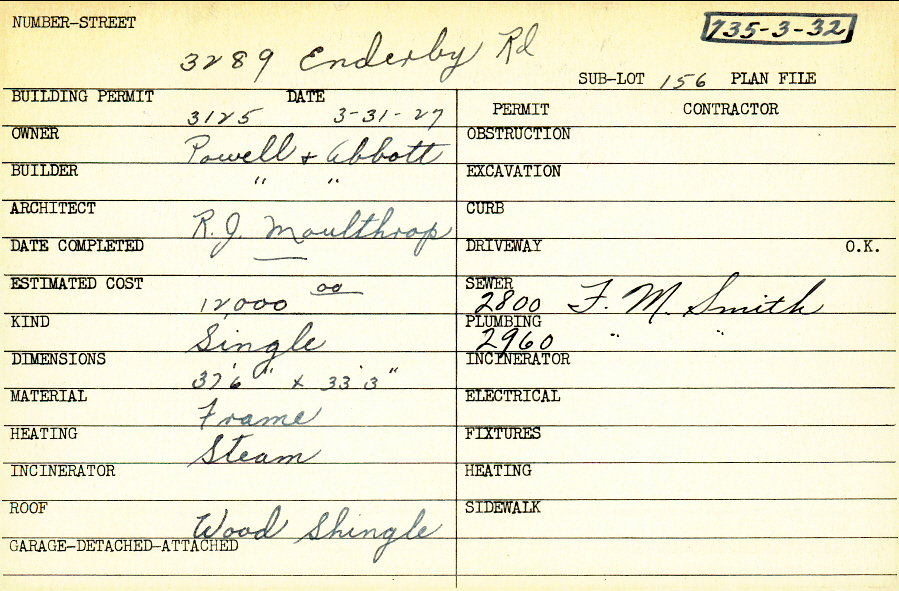 NUMBER-STREET
735-3-32
3289 Enderby Rd
SUB-LOT 156 PLAN FILE
BUILDING PERMIT DATE
3125 3-31-27
PERMIT CONTRACTOR
OWNER
Powell & Abbott
BUILDER
" "
ARCHITECT
R. J. Moulthrop
DATE COMPLETED
—
ESTIMATED COST
12,000 00
KIND
Single
DIMENSIONS
37'6" x 33'3"
MATERIAL
Frame
HEATING
Steam
INCINERATOR
ROOF
Wood Shingle
GARAGE-DETACHED-ATTACHED
OBSTRUCTION
EXCAVATION
CURB
DRIVEWAY O.K.
SEWER
2800 F. M. Smith
PLUMBING
2960 " "
INCINERATOR
ELECTRICAL
FIXTURES
HEATING
SIDEWALK